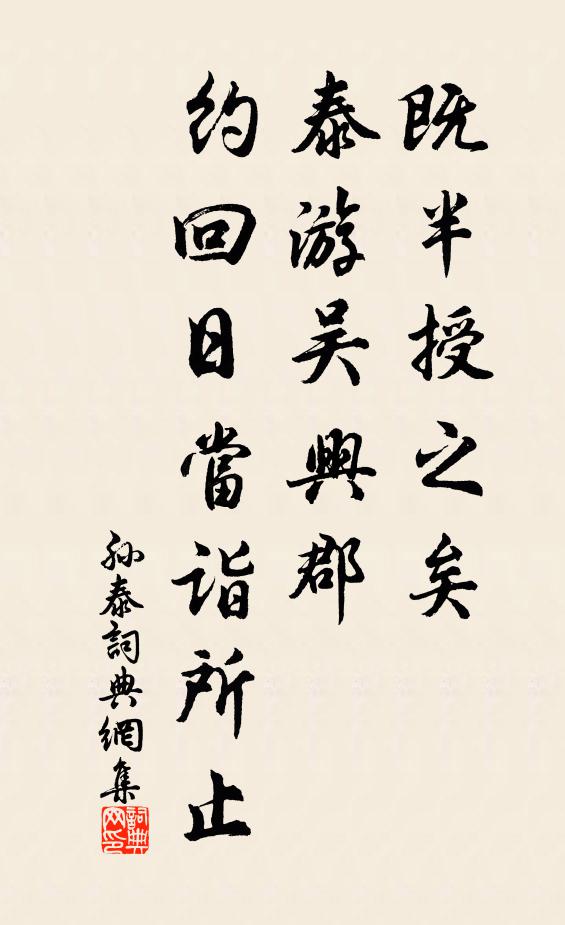 既半授之矣
泰游吴興郡
約回日當詣所止
孙泰詞典網集
詞典网印